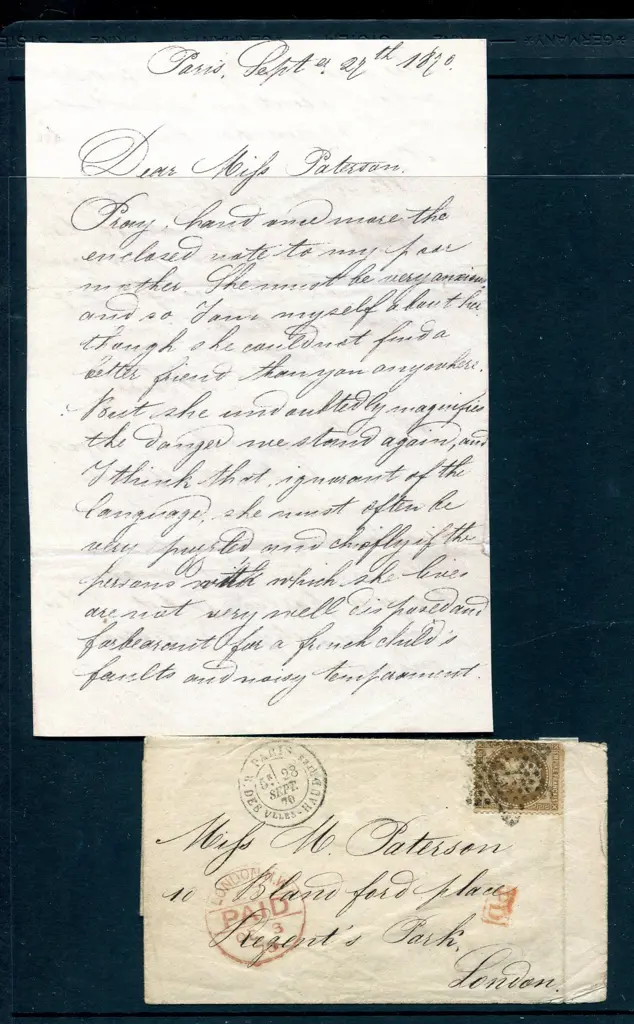 Paris, Sept er 27th 1870.
Dear Miss Paterson.
Pray, hand once more the
enclosed note to my poor
mother. She must be very anxious
and so I am myself about her
though she could not find a
better friend than you anywhere.
But she undoubtedly magnifies
the danger we stand again, and
I think that, ignorant of the
language, she must often be
very puzzled and chiefly if the
persons with which she lives
are not very well disposed and
forbearant for a french child's
faults and noisy temprament.
PARIS
SEPT.
70
R. DES VLLES-HAUDRTES
Miss M. Paterson
10 Blandford place
Regent's Park,
London.
LONDON
PAID
PD
GERMANY